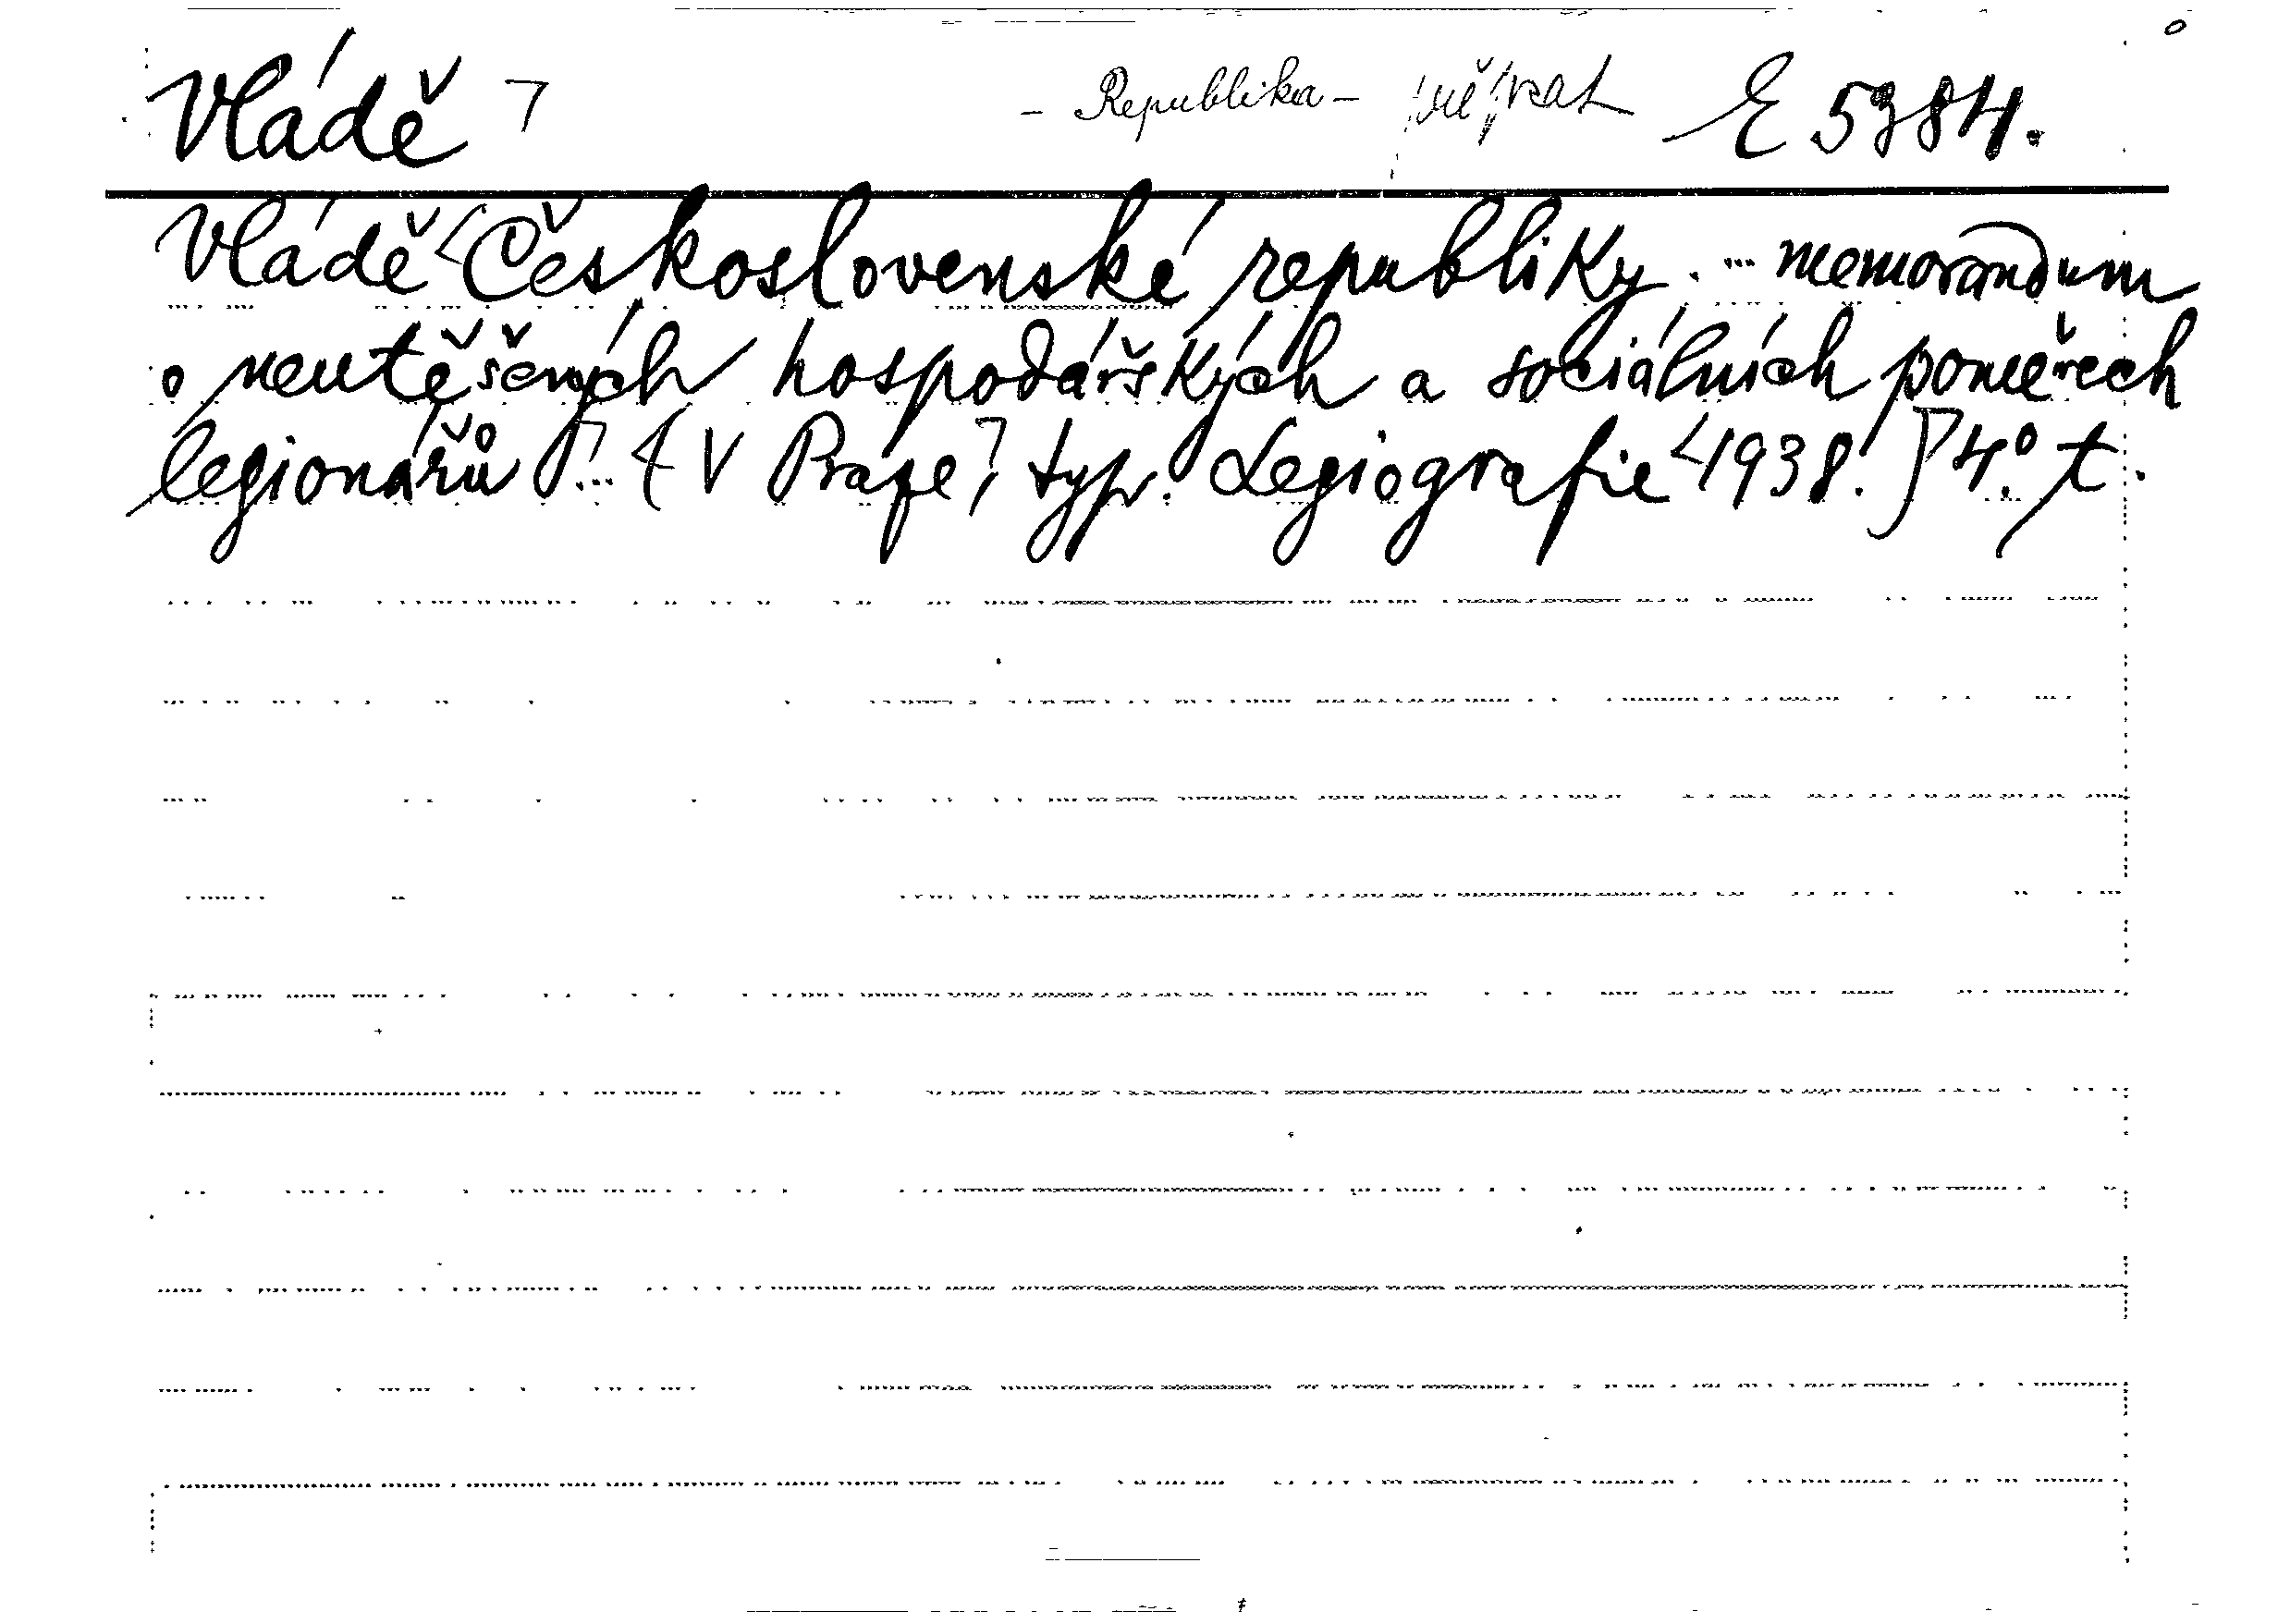 Vládě - Republika - E 5384.
Vládě Československé republiky. ... memorandum
o neutěšených hospodářských a sociálních poměrech
legionářů ... [V Praze, typ. Legiografie 1938.] 4° t.